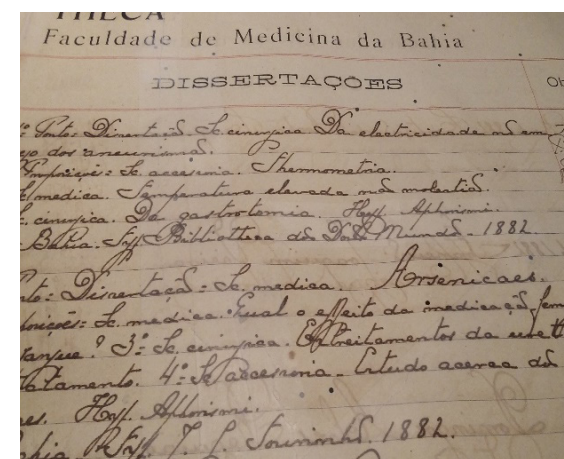 THECA
Faculdade de Medicina da Bahia
DISSERTAÇÕES
Ob
Ponto: Dissertação. Sc. cirurgica Da electricidade no em-
go dos aneurismas.
Proposições: Sc. accessoria. Thermometria.
medica. Temperatura elevada nas molestias.
cirurgica. Da gastrotomia. Hyp. Aphorismi.
Bahia. Typ. Bibliotheca dos Dous Mundos. 1882.
to: Dissertação: Sc. medica. Arsenicaes.
sições: Sc. medica. Qual o effeito da medicação fem
sangue? 3º: Sc. cirurgica. Estreitamentos da ureth
tatamento. 4º: Sc. accessoria - Estudo acerca dos
es. Hyp. Aphorismi.
ahia. Typ. J. G. Tourinho. 1882.